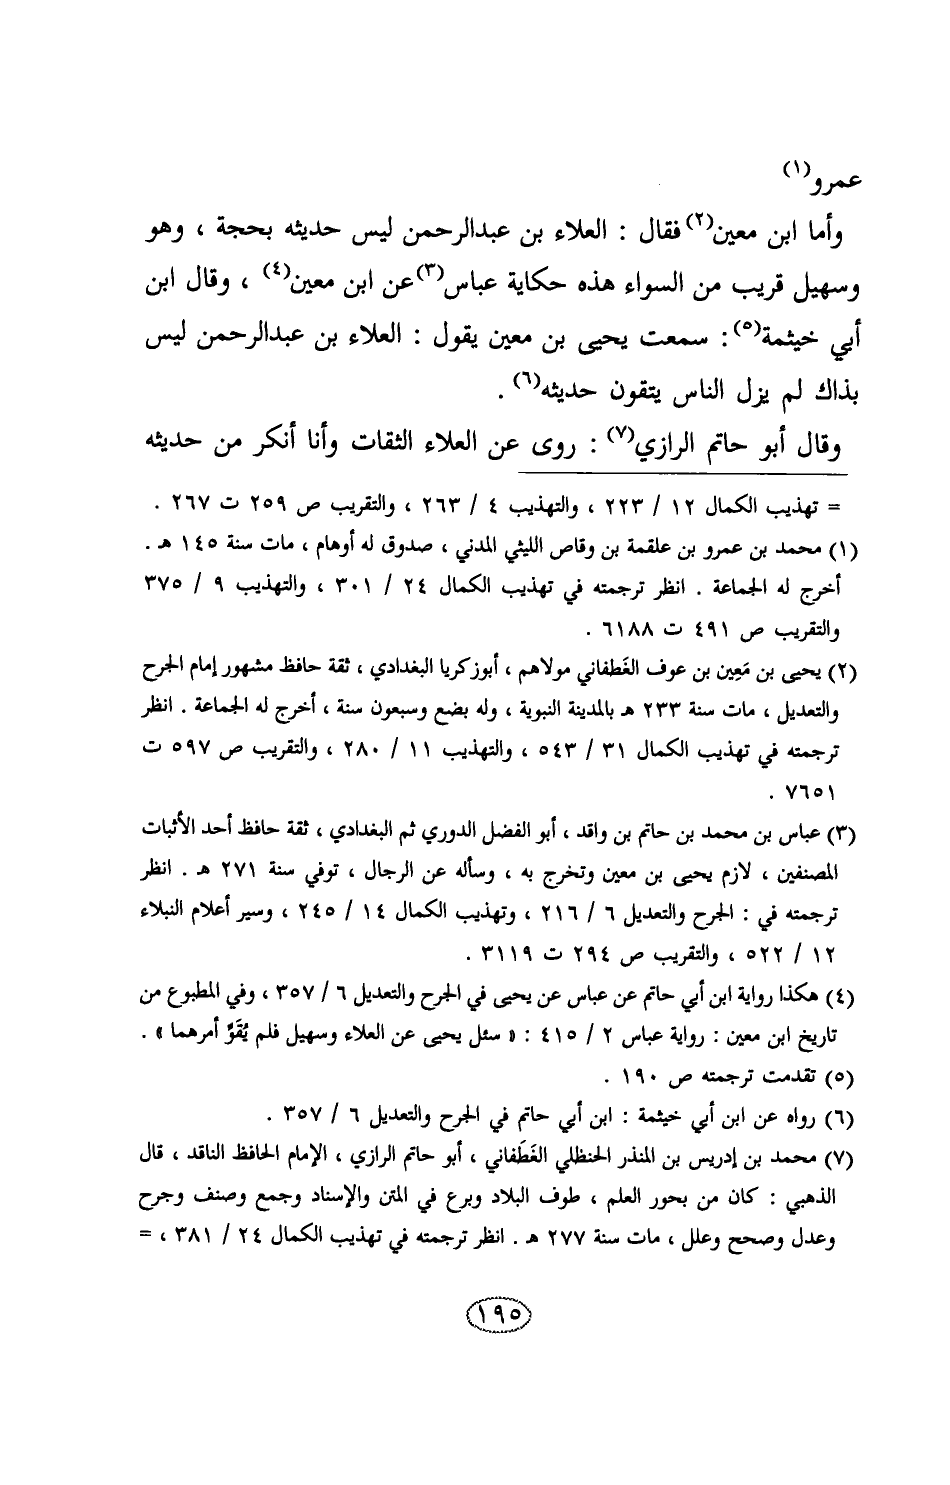 عمرو(١)
وأما ابن معين(٢) فقال : العلاء بن عبدالرحمن ليس حديثه بحجة ، وهو
وسهيل قريب من السواء هذه حكاية عباس(٣) عن ابن معين(٤) ، وقال ابن
أبي خيثمة(٥) : سمعت يحيى بن معين يقول : العلاء بن عبدالرحمن ليس
بذاك لم يزل الناس يتقون حديثه(٦) .
وقال أبو حاتم الرازي(٧) : روى عن العلاء الثقات وأنا أنكر من حديثه
= تهذيب الكمال ١٢ / ٢٢٣ ، والتهذيب ٤ / ٢٦٣ ، والتقريب ص ٢٥٩ ت ٢٦٧ .
(١) محمد بن عمرو بن علقمة بن وقاص الليثي المدني ، صدوق له أوهام ، مات سنة ١٤٥ هـ .
أخرج له الجماعة . انظر ترجمته في تهذيب الكمال ٢٤ / ٣٠١ ، والتهذيب ٩ / ٣٧٥
والتقريب ص ٤٩١ ت ٦١٨٨ .
(٢) يحيى بن مَعِين بن عوف الغَطفاني مولاهم ، أبوزكريا البغدادي ، ثقة حافظ مشهور إمام الجرح
والتعديل ، مات سنة ٢٣٣ هـ بالمدينة النبوية ، وله بضع وسبعون سنة ، أخرج له الجماعة . انظر
ترجمته في تهذيب الكمال ٣١ / ٥٤٣ ، والتهذيب ١١ / ٢٨٠ ، والتقريب ص ٥٩٧ ت
٧٦٥١ .
(٣) عباس بن محمد بن حاتم بن واقد ، أبو الفضل الدوري ثم البغدادي ، ثقة حافظ أحد الأثبات
المصنفين ، لازم يحيى بن معين وتخرج به ، وسأله عن الرجال ، توفي سنة ٢٧١ هـ . انظر
ترجمته في : الجرح والتعديل ٦ / ٢١٦ ، وتهذيب الكمال ١٤ / ٢٤٥ ، وسير أعلام النبلاء
١٢ / ٥٢٢ ، والتقريب ص ٢٩٤ ت ٣١١٩ .
(٤) هكذا رواية ابن أبي حاتم عن عباس عن يحيى في الجرح والتعديل ٦ / ٣٥٧ ، وفي المطبوع من
تاريخ ابن معين : رواية عباس ٢ / ٤١٥ : « سئل يحيى عن العلاء وسهيل فلم يُقَوِّ أمرهما » .
(٥) تقدمت ترجمته ص ١٩٠ .
(٦) رواه عن ابن أبي خيثمة : ابن أبي حاتم في الجرح والتعديل ٦ / ٣٥٧ .
(٧) محمد بن إدريس بن المنذر الحنظلي الغَطَفاني ، أبو حاتم الرازي ، الإمام الحافظ الناقد ، قال
الذهبي : كان من بحور العلم ، طوف البلاد وبرع في المتن والإسناد وجمع وصنف وجرح
وعدل وصحح وعلل ، مات سنة ٢٧٧ هـ . انظر ترجمته في تهذيب الكمال ٢٤ / ٣٨١ ، =
١٩٥